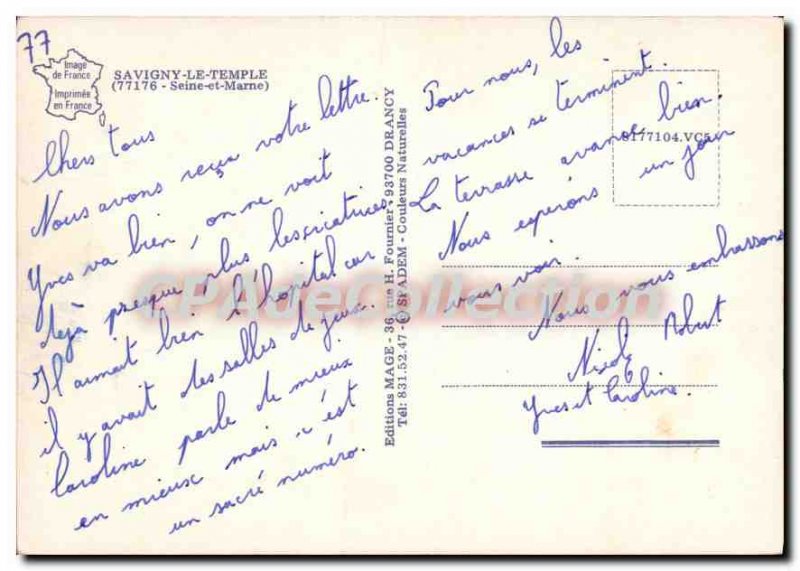 77
Image
de France
Imprimée
en France
SAVIGNY-LE-TEMPLE
(77176 - Seine-et-Marne)
Chers tous
Nous avons reçu votre lettre.
Yves va bien, on ne voit
déjà presque plus les cicatrices
Il aimait bien l'hopital car
il y avait des salles de jeux.
Caroline parle de mieux
en mieux mais c'est
un sacré numéro.
Editions MAGE - 36, rue H. Fournier - 93700 DRANCY
Tél: 831.52.47 - © SPADEM - Couleurs Naturelles
Pour nous, les
vacances se terminent.
La terrasse avance bien.
Nous esperons un jour
vous voir.
Nous vous embrassons
Nicole Robert
Yves et Caroline.
S177104.VC5
CPAdeCollection